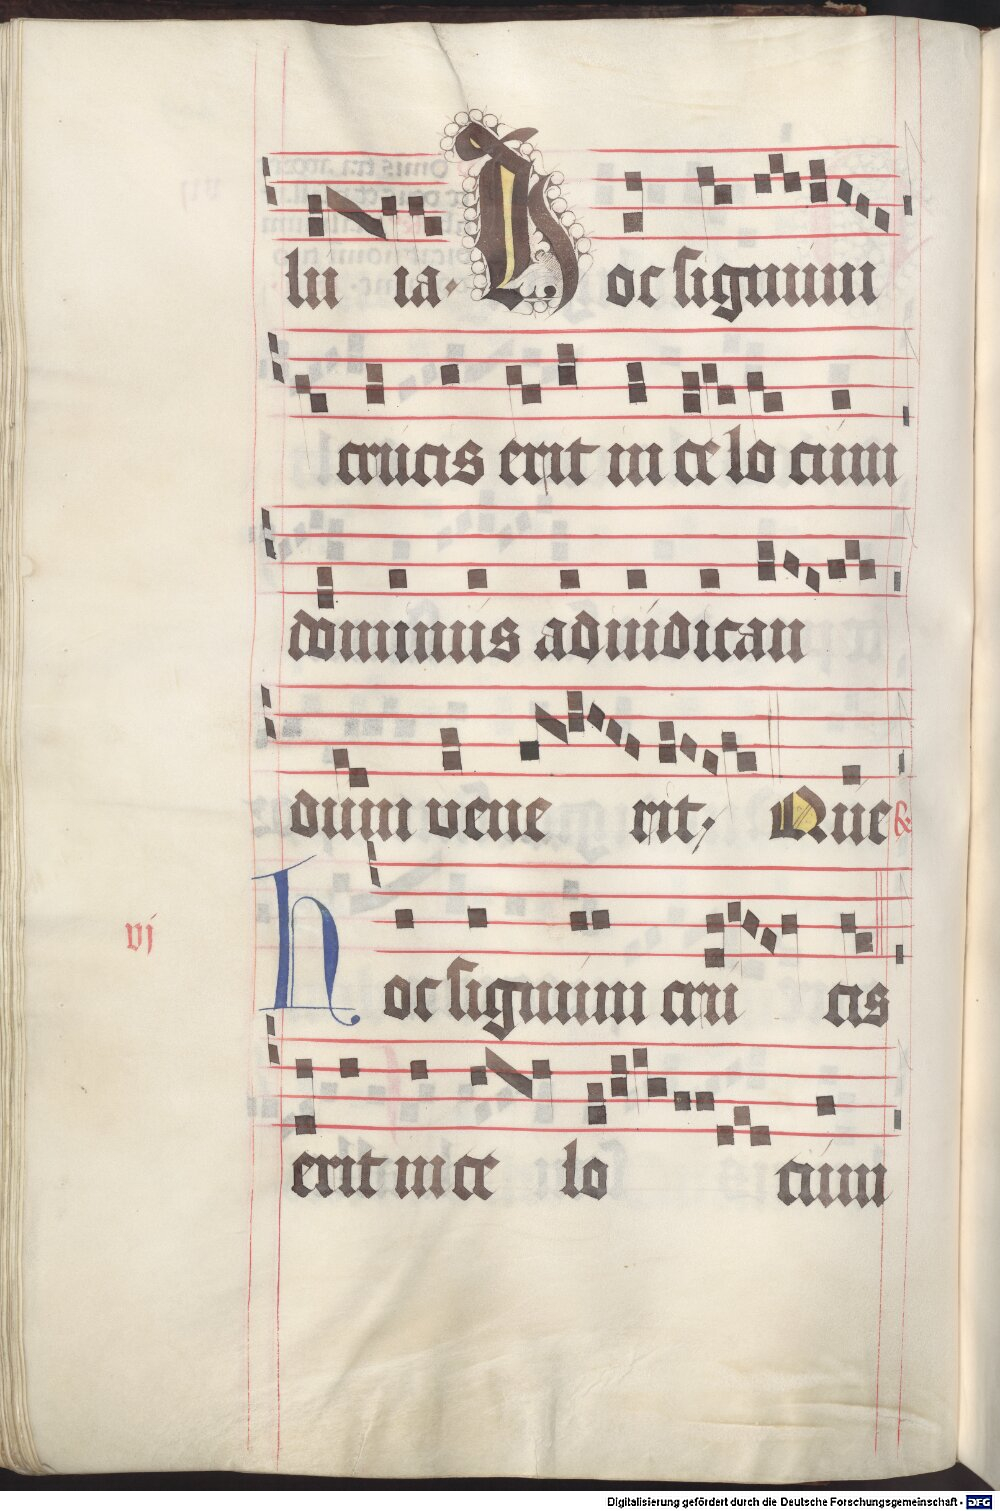 lu ia. Hoc signum
crucis erit in celo cum
dominus ad iudican
dum vene rit. Aue
vj
Hoc signum cru cis
erit in ce lo cum
Digitalisierung gefördert durch die Deutsche Forschungsgemeinschaft - DFG